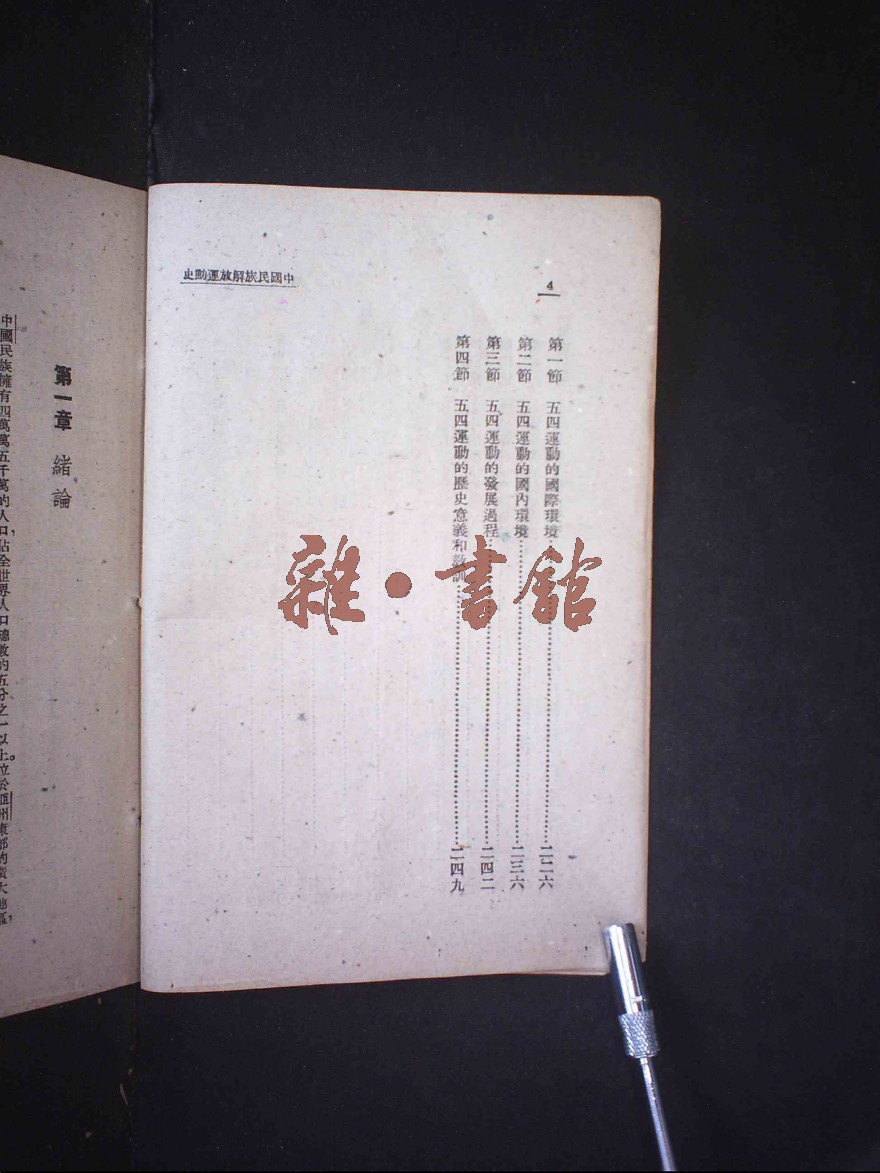 4
史動運放解族民國中
第一節　五四運動的國際環境……二二六
第二節　五四運動的國內環境……二三六
第三節　五四運動的發展過程……二四二
第四節　五四運動的歷史意義和教訓……二四九
雜•書館
第一章　緒論
中國民族擁有四萬萬五千萬的人口，佔全世界人口總數的五分之一以上。位於亞洲東部的廣大地區，